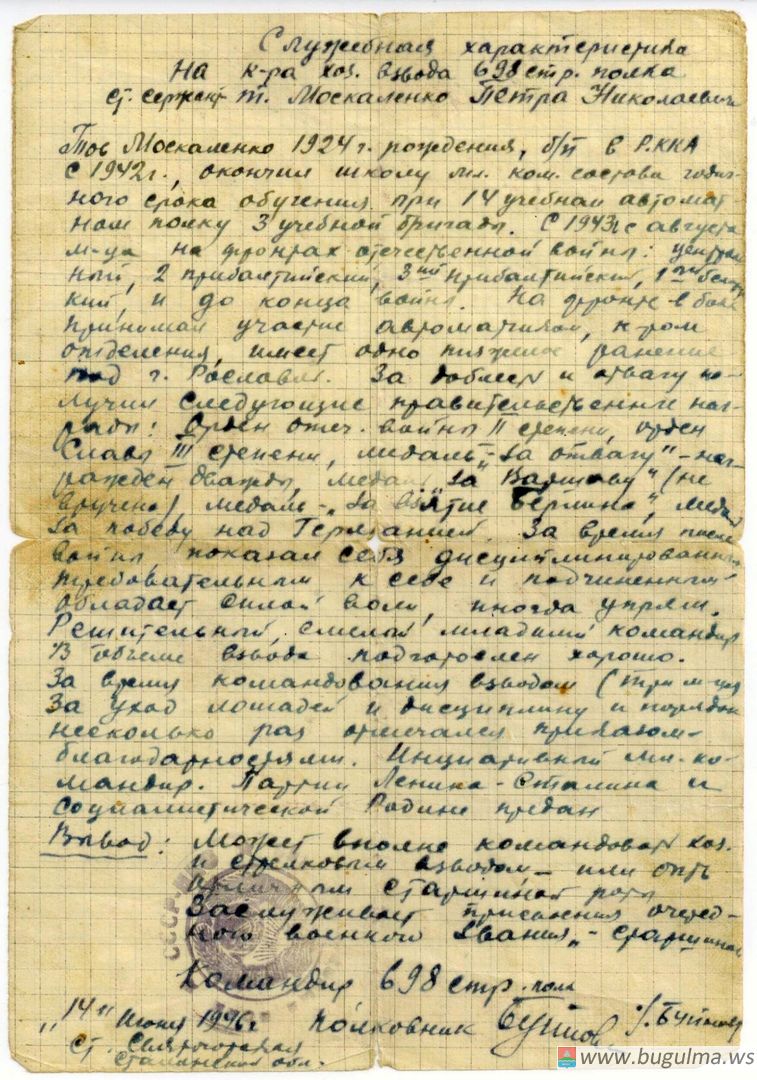 Служебная характеристика
На к-ра хоз. взвода 698 стр. полка
ст. сержант т. Москаленко Петра Николаевича
Тов Москаленко 1924 г. рождения, б/п в РККА
с 1942 г., окончил школу мл. ком. состава годич-
ного срока обучения при 14 учебном автомат-
ном полку 3 учебной бригады. С 1943 г с августа
м-ца на фронтах отечественной войны: централь
ный, 2 прибалтийский, 3ий прибалтийский, 1ый белорус
кий, и до конца войны. На фронте в боях
принимал участие автоматчиком, к-ром
отделения, имеет одно тяжелое ранение
под г. Рославль. За доблесть и отвагу по-
лучил следующие правительственные наг-
рады: Орден отеч. войны II степени, орден
Славы III степени, медаль „За отвагу" - наг-
ражден дважды, медаль „За Варшаву" (не
вручена), медаль - „За взятие Берлина", медаль
За победу над Германией. За время после
войны показал себя дисциплинированным
требовательным к себе и подчиненным
обладает силой воли, иногда упрям.
Решительный, смелый младший командир
В объеме взвода подготовлен хорошо.
За время командования взводом (три м-ца
За уход лошадей и дисциплину и порядок
несколько раз отмечался приказом-
благодарностями. Инициативный мл. ко-
мандир. Партии Ленина-Сталина и
социалистической Родине предан
Вывод: Может вполне командовать хоз.
и стрелковым взводом - или быть
отличным старшиной роты
Заслуживает присвоения очеред-
ного военного звания - старшина
СССР
Командир 698 стр. полк
„14" Июня 1946 г полковник
Ст.
Сталинской обл.
www.bugulma.ws